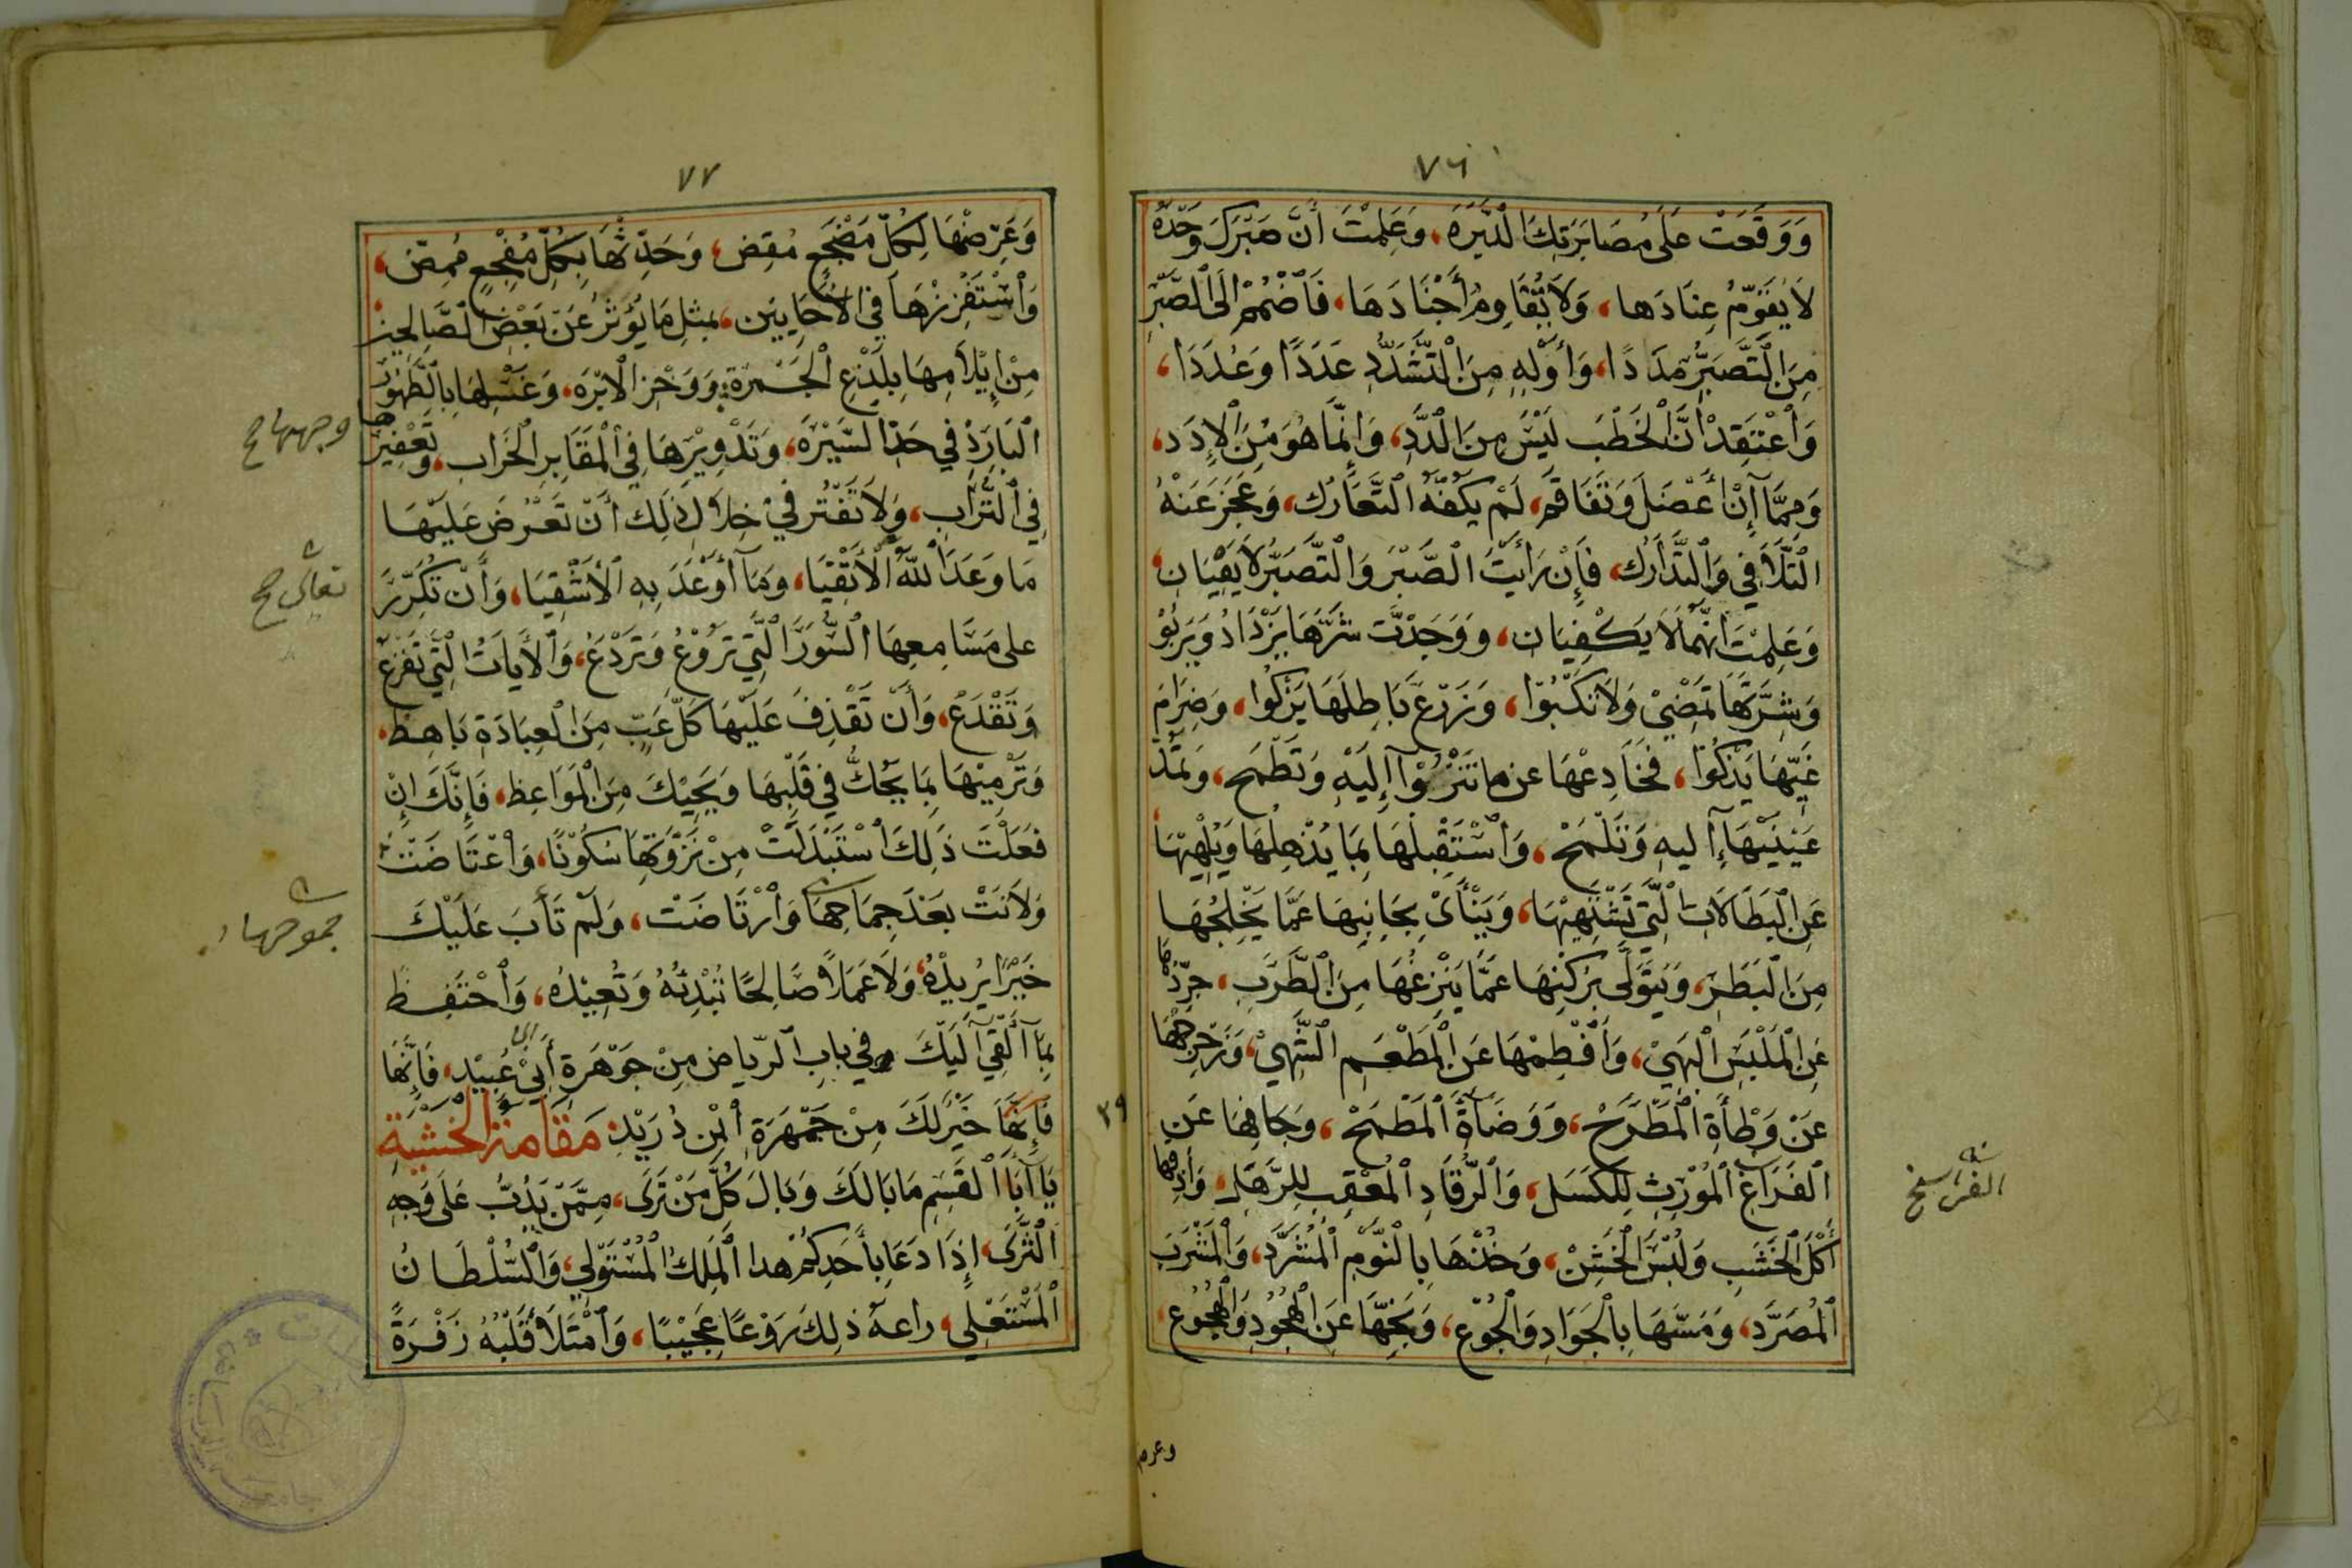 ٧٦
وَوَقَعَتْ عَلَى مُصَابَرَتِكَ الدَّبَرَة، وَعَلِمْتَ أَنَّ صَبْرَكَ وَحْدَهُ
لَا يُقَوِّمُ عِنَادَها، وَلَا يُقَاوِمُ أَجْنَادَهَا، فَاَضْمُمْ اِلَى الصَّبْرِ
مِنَ التَّصَبُّرِ مَدَدًا، وَأَوْلِهِ مِنَ التَّشَدُّدِ عَدَدًا وَعُدَدَا،
وَاعْتَقِدْ اَنَّ الْخَطْبَ لَيْسَ مِنَ الدَّدِ، وَاِنَّمَا هُوَ مِنَ الْإِدَد،
وَمِمَّا إِنْ أَعْضَلَ وَتَفَاقَم، لَمْ يَكْفِهِ التَّعَارُك، وَعَجَزَ عَنْهُ
التَّلَافِي وَالتَّدَارُك، فَإِنْ رَأَيْتَ الصَّبْرَ وَالتَّصَبُّرَ لَا يَفِيَان،
وَعَلِمْتَ اَنَّهُمَا لَا يَكْفِيَان، وَوَجَدْتَ شَرَّهَا يَزْدَادُ وَيَرْبُوْ
وَشِرَّتَهَا تَمْضِيْ وَلَا تَكْبُوْا، وَزَرْعَ بَاطِلَهَا يَزْكُوا، وَضِرَامَ
غَيِّهَا يَذْكُوْا، فَخَادِعْهَا عن ما تَنْزُوْا إِلَيْهِ وَتَطْمَح، وَتَمُدُّ
عَيْنَيْهَا إِليهِ وَتَلْمَحْ، وَاسْتَقْبِلْهَا بِمَا يُذْهِلُهَا وَيُلْهِيْهَا
عَنِ الْبَطَالَاتِ الَّتِي تَشْتَهِيْهَا، وَيَنْأَىْ بِجَانِبِهَا عَمَّا يَخْلِجُهَا
مِنَ الْبَطَر، وَيَتَوَلَّى بِرُكْنِهَا عَمَّا يَنْزِعُهَا مِنَ الطَّرَبِ، جَرِّدْهَا
عَنِ الْمَلْبَسِ الْبَهِيْ، وَافْطِمْهَا عَنِ الْمَطْعَمِ الشَّهِيْ، وَزَحْزِحْهَا
عَنْ وَطْأَةِ الْمَطْرَحْ، وَوَضَاءَةَ الْمَطْمَحْ، وَجَافِهَا عَنِ
الْفَرَاغِ الْمُوْرِثِ لِلْكَسَلِ، وَالرُّقَادِ الْمُعْقِبِ لِلرَّهَلِ، وَأَذِقْهَا
أَكْلَ الْخَشَبِ وَلُبْسَ الْخَشِنْ، وَخُذْهَا بِالنَّوْمِ الْمُشَرَّد، وَالْمَشْرَبِ
الْمُصَرَّد، وَمَسَّهَا بِالْجَوَادِ وَالْجُوْع، وَنَحِّهَا عَنِ الْهُجُوْدِ وَالْهُجُوْع،
وعرض
٧٧
وَعَرِّضْهَا لِكُلِّ مَضْجَعٍ مُقِض، وَحَدِّثْهَا بِكُلِّ مُفْجِعٍ مُمِضّ،
وَاسْتَفْزِزْهَا فِي الْاَحَايِيْن، بِمثِلِ مَا يُؤْثَرُ عَنْ بَعْضِ الصَّالِحِين
مِنْ إِيْلَامِهَا بِلَذْعِ الْجَمْرَة، وَوَخْزِ الْاِبْرَه، وَغَسْلِهَا بِالطَّهُوْرِ
الْبَارِدْ فِي حَدِّ السَّبْرَة، وَتَدْوِيْرِهَا فِي الْمَقَابِرِ الْخَراب، وَتَعْفِيْرِهَا
وجهها ح
فِي التُّرَاب، وَلَا تَفْتُر فِيْ خِلَال ذلِكَ أَنْ تَعْرُضَ عَلَيْهَا
مَا وَعَدَ اللّٰهُ الْأَتْقِيَا، وَمَا أَوْعَدَ بِهِ الْأَشْقِيَا، وَأَنْ تُكَرِّرَ
تعالى ح
على مَسَامِعِهَا السُّوَرَ الَّتِي تَرُوْعُ وَتَرْدَعُ، وَالْأَيَاتِ الَّتِي تَقْرَعُ
وَتَقْدَعْ، وَأَنْ تَقْذِفَ عَلَيْهَا كُلَّ عِبٍ مِنَ الْعِبَادَةِ بَاهِظ،
وَتَرْمِيْهَا بِمَا يَحُكُّ فِي قَلْبِهَا وَيَحِيْكَ مِنَ الْمَوَاعِظِ، فَإِنَّكَ إِنْ
فَعَلْتَ ذَلِكَ اسْتَبْدَلَتْ مِنْ نَزْوَتِهَا سُكُوْنًا، وَاعْتَاضَتْ
وَلَانَتْ بَعْدَ جِمَاحِهَا وَارْتَاضَتْ، وَلَمْ تَأْبَ عَلَيْكَ
جموحها
خَيْرًا يُرِيْدُهُ وَلَا عَمَلًا صَالِحًا تُبْدِئُهُ وَتُعِيْدُه، وَاحْتَفِظْ
بِمَا أَلْقِيَ اِلَيْكَ فِي بابِ الرّياضِ مِنْ جَوْهَرَةِ أَبِيْ عُبَيْد، فَإِنَّهَا
فَإِنَّهَا خَيْرٌ لَكَ مِنْ جَمْهَرَةِ ابْنِ دُرَيْد: مَقَامَةُ الْخَشْيَةِ
يَا أَبَا الْقَسِمِ مَا بَالَكَ وَبَالَ كُلِّ مَنْ تَرَى، مِمَّنْ يَدُبُّ عَلَى وَجِهِ
الْثَّرَى، إِذَا دَعَا بِأَحَدِكُمْ هذا الْمَلِكُ الْمُسْتَوْلِي، وَالسُّلْطَانُ
الْمُسْتَعْلِي، راعهُ ذلِكَ رَوْعًا عَجِيْبًا، وَامْتَلَأ قَلْبُهُ زَفْرَةً